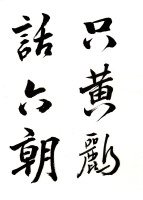 只黃鸝
話六朝